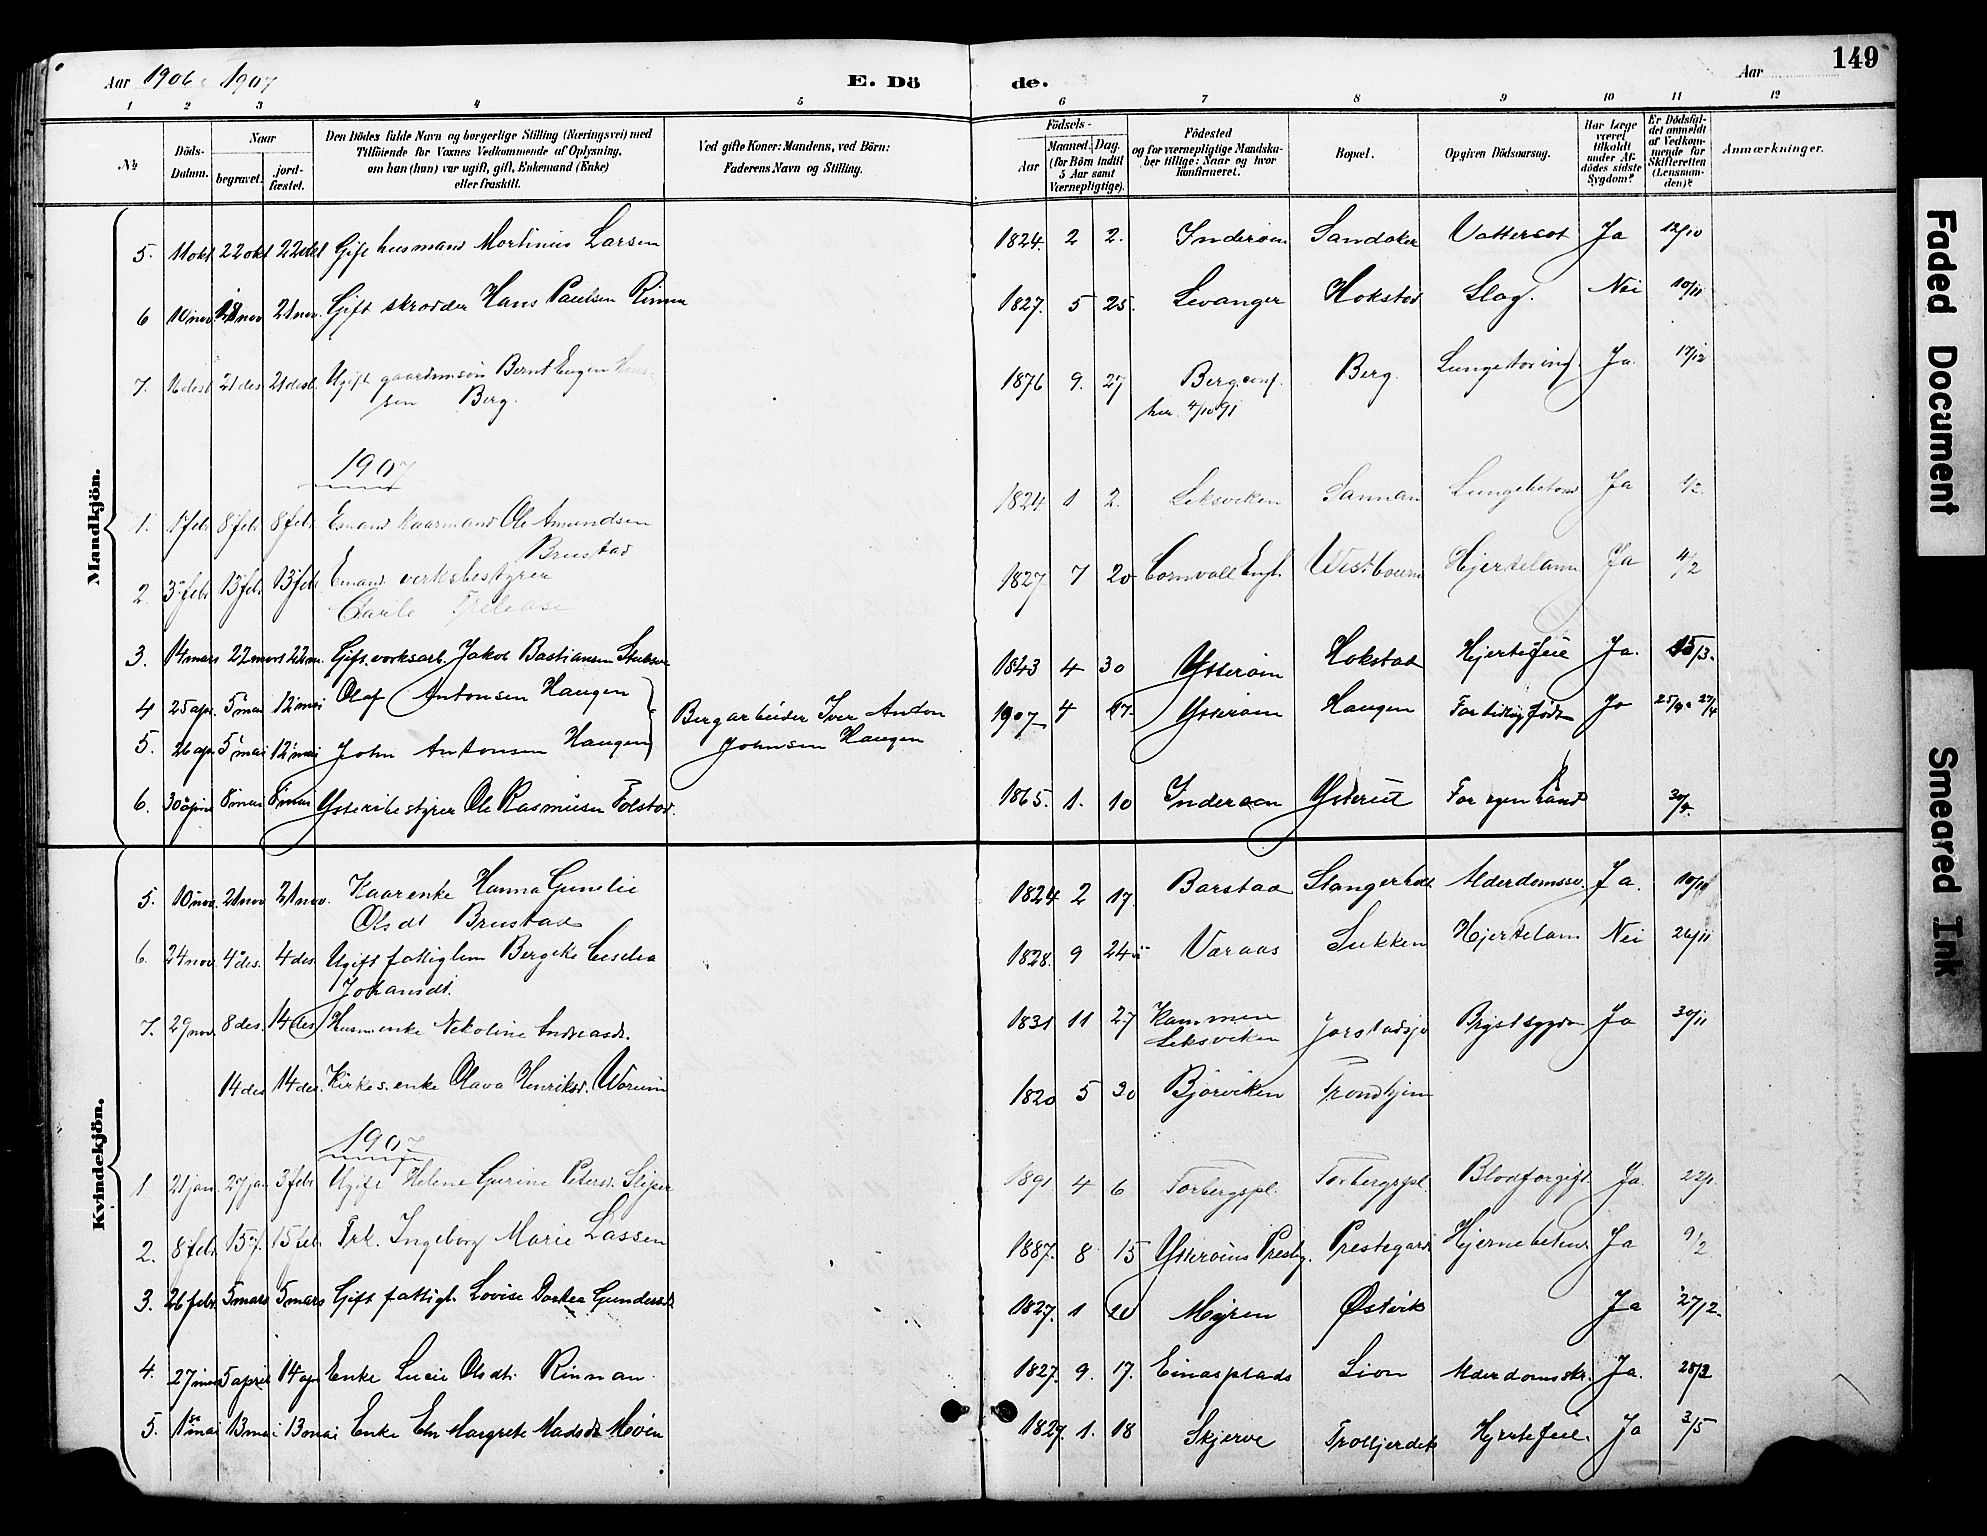 149
Aar 1906 1907
E. Dö
de.
Aar
1 2 3 4 5 6 7 8 9 10 11 12
№
Döds-Datum.
Naar
begravet.
jordfæstet.
Den Dödes fulde Navn og borgerlige Stilling (Næringsvei) med
Tilföiende for Voxnes Vedkommende af Oplysning,
om han (hun) var ugift, gift, Enkemand (Enke)
eller fraskilt.
Ved gifte Koner: Mandens, ved Börn:
Faderens Navn og Stilling.
Födsels-
Aar
Maaned. Dag.
(for Börn indtil
5 Aar samt
Værnepligtige).
Födested
og for værnepligtige Mandska-
ber tillige: Naar og hvor
konfirmeret.
Bopæl.
Opgiven Dödsaarsag.
Har Læge
været
tilkaldt
under Af-
dödes sidste
Sygdom?
Er Dödsfal-
det anmeldt
af Vedkom-
mende for
Skifteretten
(Lensman-
den)?
Anmærkninger.
Mandkjön.
5. 11 okt 22 okt 22 okt Gift husmand Martinus Larsen 1824. 2 2. Inderøen Sandaker Vattersot Ja 12/10
6 10 nov 18 nov 21 nov. Gift skrædder Hans Paulsen Rinnan 1827. 5 25. Levanger Hokstad Slag. Nei 10/11
7. 16 desb 21 des 21 desb. Ugift gaardmsøn Bernt Eugen Han-
sen Berg. 1876 9. 27 Berg conf. Berg. Ja. 17/12
her. 4/10 91
1907
1. 1 feb. 8 feb. 8 feb. Emand kaarmand Ole Amundsen
Brustad 1824 1 2. Leksviken Sannan Lungebeten Ja 1/2
2. 3 feb. 13 feb. 13 feb. Emand verksbestyrer
Trelease 1827 7 20 Cornwall Engl. Westbourn Hjertelam Ja 4/2
3. 14 mars 22 mars 22 m. Gift. verksarb. Jakob Bastiansen 1843 4 30 Ytterøen Hokstad Hjertefeil Ja. 15/3.
4 25 apr. 5 mai 12 mai Olaf Antonsen Haugen Bergarbeider Iver Anton 1907 4 17. Ytterøen Haugen For tidlig født Ja 25/4 27/4
5. 26 apr. 5 mai 12 mai John Antonsen Haugen Johnsen Haugen
6. 30 april 8 mai 8 mai Ysteribestyrer Ole Rasmusen Folstad. 1865. 1. 10 Inderøen Ysteriet For egen haand 30/4.
Kvindekjön.
5. 10 nov. 21 nov 21 nov. Kaarenke Hanna Gunelie
Olsdt Brustad 1824 2 17. Barstad Slangerholt Alderdomssv. Ja. 10/11
6. 24 nov. 4 des. 4 des. Ugift fattiglem Bergitte Cecelia
Johansdt. 1828. 9 24 Varaas Sukken Hjertelam Nei 26/11
7. 29 nov. 8 des. 14 des Husmenke Nekoline Andreasdt. 1831 11 27 Kammen
Leksviken Jorstadsjø Brystsygdom Ja 30/11
14 des 14 des. Kirkes. enke Olava Henriksd. Worum 1820 5 30 Bjørviken Trondhjem
1907
1 21 jan 27 jan 3 feb. Ugift Helene Gurine Petersd. Sliper 1891 4 6 Forbergspl. Forbergspl. Blodforgift. Ja. 22/1
2. 8 feb. 15 f. 15 feb. Frk. Ingeborg Marie Lassen 1887. 8 15 Ytterøens Prestg. Prestegard Hjernebeten. Ja 9/2
3. 26 feb. 5 mars 5 mars Gift fattigl. Lovise Dortea Gundersdt 1827. 1 20 Myren Østvik Ja 27/2.
4. 27 mars 5 april 14 apr Enke Lucie Olsdt. Rinnan. 1827. 9. 17. Einasplads Lion Alderdomsskr. Ja. 28/3
5. 1 mai 13 mai 13 mai Enke Eln Margrete Madsdt Moøen 1829. 1. 18 Skjerve Trolljerdet Hjertefeil. Ja 3/5
Faded Document
Smeared Ink